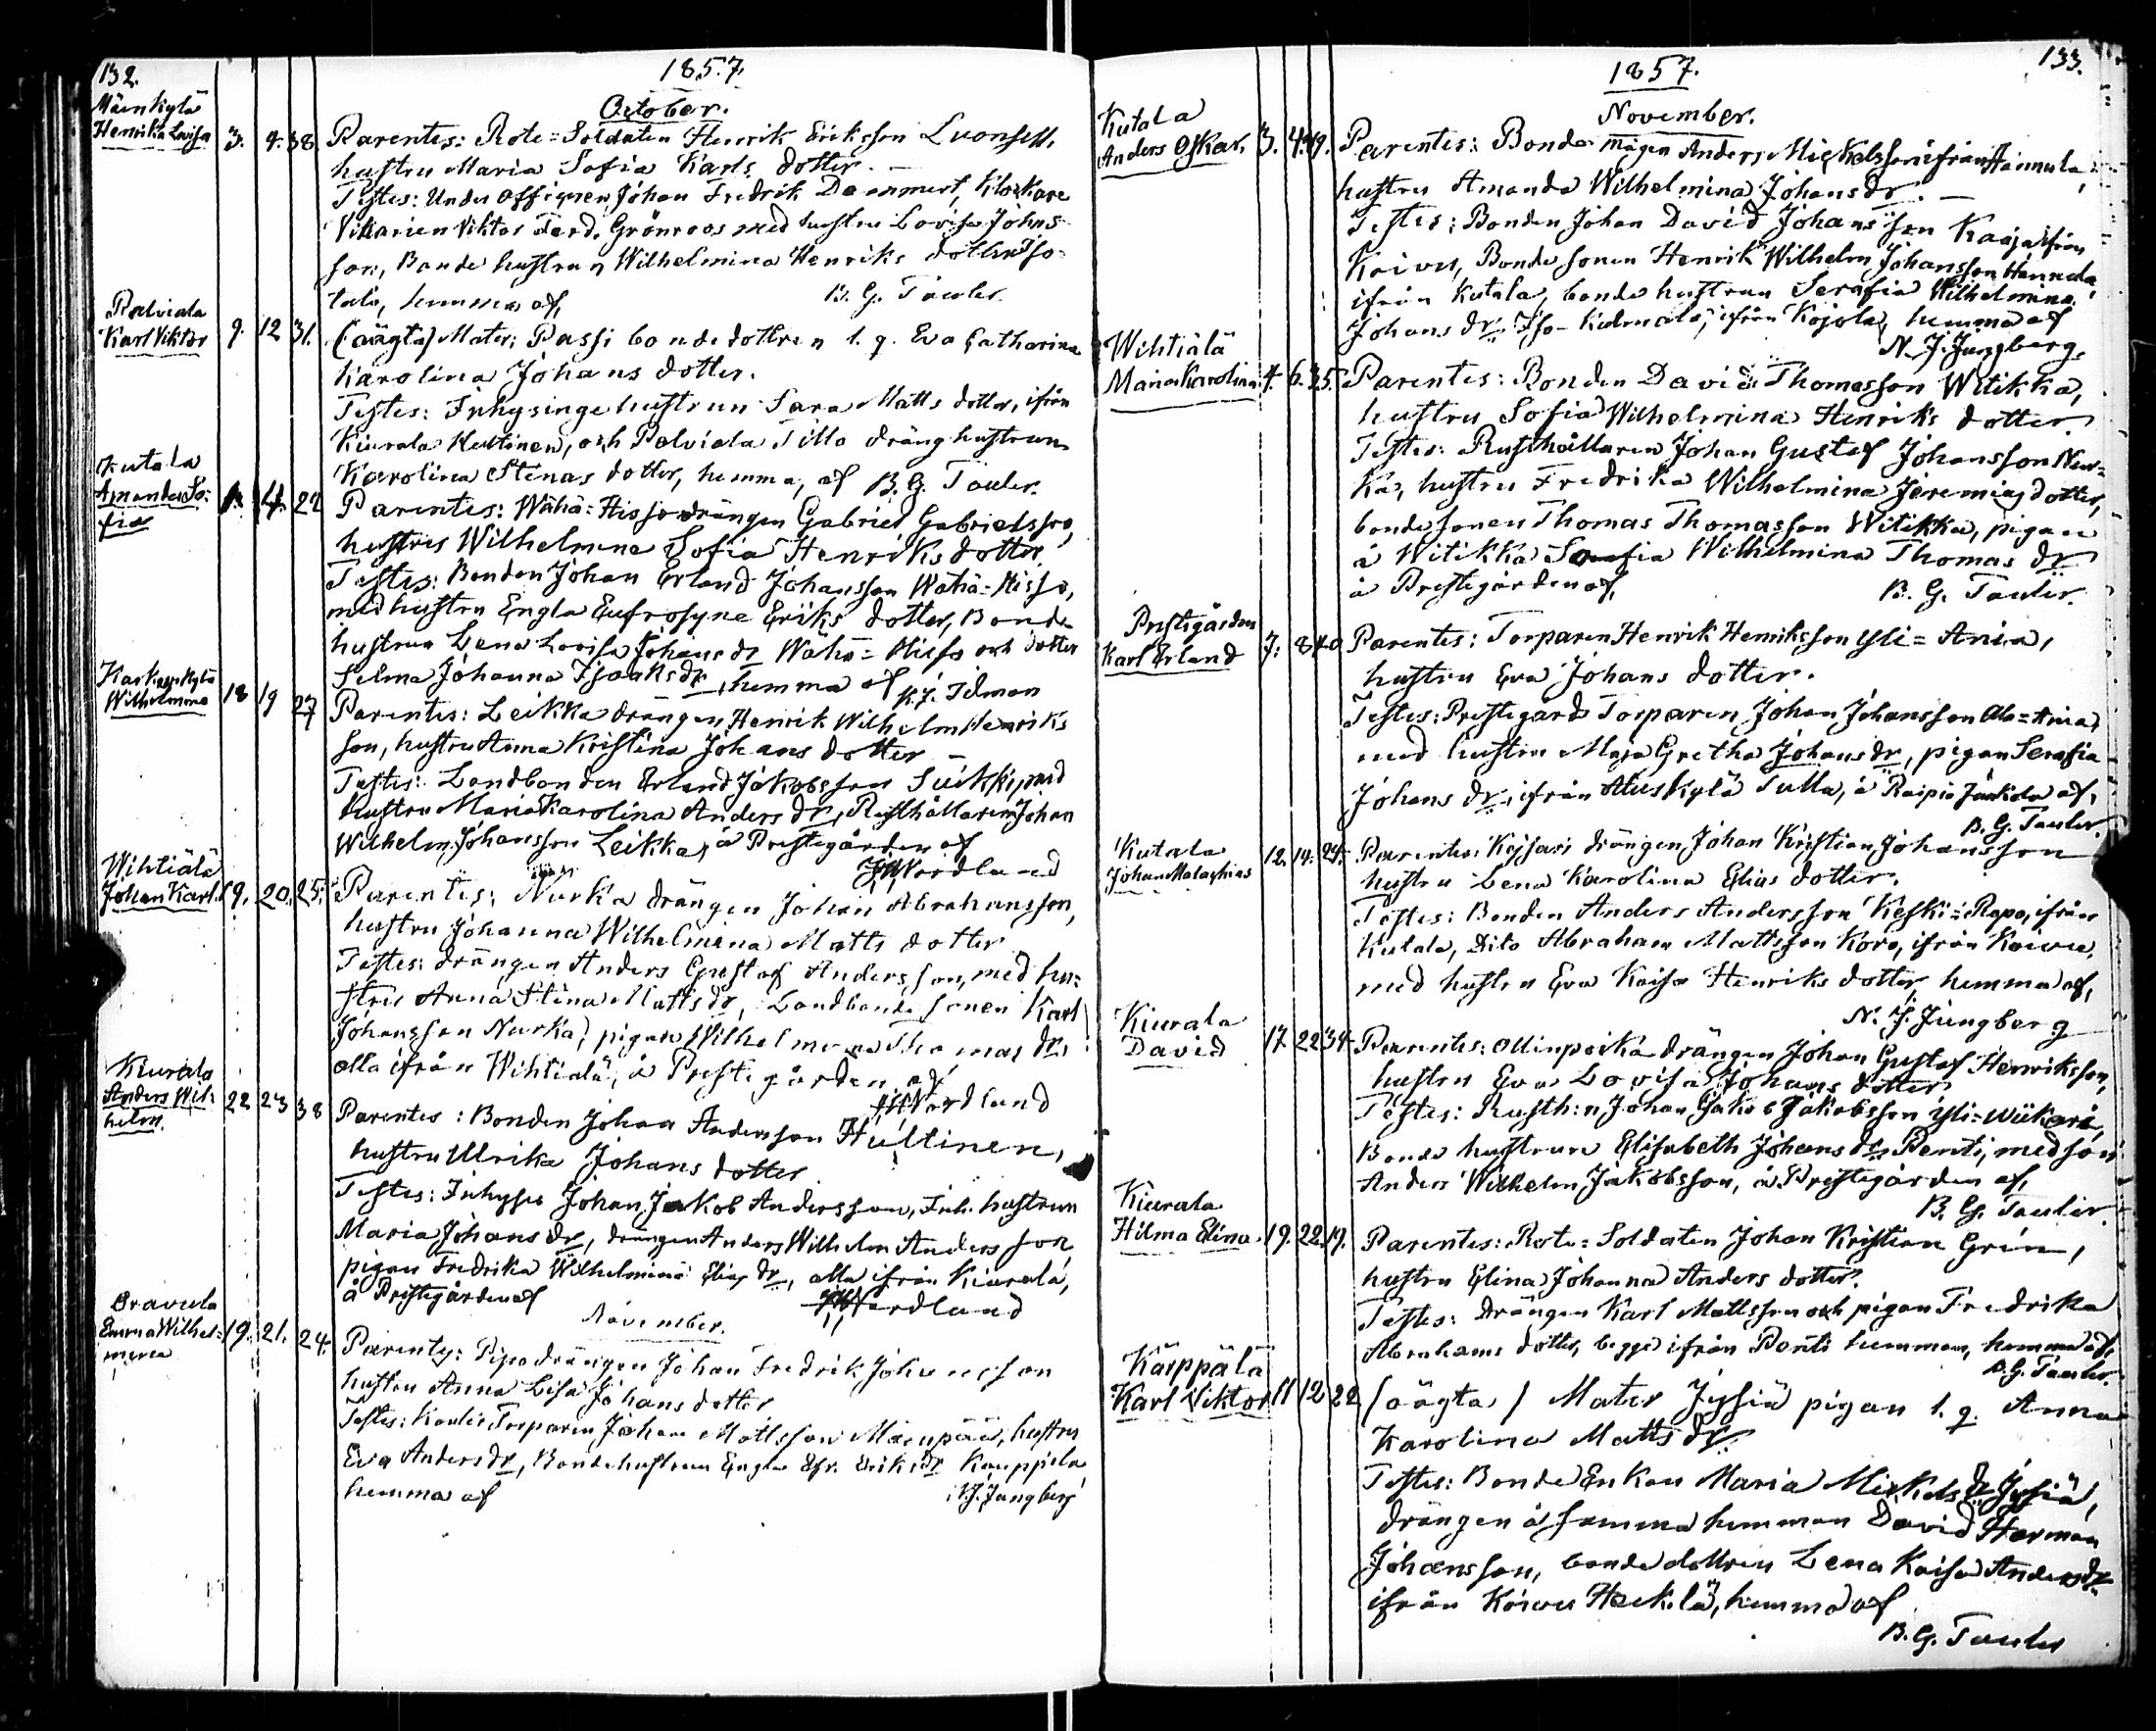 132.
1857.
October.
Mäenkylä
Henrika Lovisa 3. 4. 38
Parentes: Rote=Soldaten Henrik Eriksson
hustru Maria Sofia Karls dotter.
Testes: Under Officeren Johan Fredrik Klockare
Vikarien Viktor Ferd. Grönroos med hustru Lovisa Johns
son, Bonde hustrun Wilhelmina Henriks dotter Iso-
talo, hemma af, B. G. Tauler.
Palviala
Karl Viktor 9. 12 31.
(oägta) Mater: Passi bondedottren l. q. Eva Catharina
Karolina Johans dotter.
Testes: Inhysinge hustrun Sara Matts dotter, ifrån
Kiurala Hultinen, och Palviala Tillo dräng hustrun
Karolina Stinas dotter, hemma, af B. G. Tauler.
Kutala
Amanda So-
fia 22
Parentes: Wähä=Hisso drängen Gabriel Gabrielsson,
hustru Wilhelmina Sofia Henriks dotter.
Testes: Bonden Johan Erland Johansson Wähä=Hisso,
med hustru Engla Eufrosyne Eriks dotter, Bonde
hustrun Lena Lovisa Johans dr Wähä=Hisso och dotter
Selma Johanna Isaaks dr, hemma af K. J. Idman
Karkunkylä
Wilhelmina 18 19 27
Parentes: Leikka drängen Henrik Wilhelm Henriks
son, hustru Anna Kristina Johans dotter
Testes: Landbonden Erland Jakobsson Suikki, med
hustru Maria Karolina Anders dr, Rusthållaren Johan
Wilhelm Johansson Leikka, å Prestegården af
Nordlund
Wihtiälä
Johan Karl. 19. 20. 25.
Parentes: Nurka drängen Johan Abrahamsson,
hustru Johanna Wilhelmina Matts dotter
Testes: drängen Anders Gustaf Andersson, med hu-
stru Anna Stina Matts dr, Landbonde sonen Karl
Johansson Nurka, pigan Wilhelmina Thomas dr,
alla ifrån Wihtiälä, å Prestegården af
Nordlund
Kiurala
Anders Wil-
helm. 22 23 38
Parentes: Bonden Johan Andersson Hultinen,
hustru Ulrika Johans dotter
Testes: Inhyses Johan Jakob Andersson, Inh. hustrun
Maria Johans dr, drängen Anders Wilhelm Andersson,
pigan Fredrika Wilhelmina Elias dr, alla ifrån Kiurala,
å Prestegården af Nordlund
November.
Emma Wilhel-
mina 19. 21. 24.
Parentes: drängen Johan Fredrik Johansson
hustru Anna Lisa Johans dotter
Testes: Torparen Johan Mattsson Mäenpää, hustru
Eva Anders dr, Bonde hustrun Engla Efr. Eriks dr Kauppila
hemma af N. J. Jungberg
133.
1857.
November.
Kutala
Anders Oskar. 3. 4. 19.
Parentes: Bonde mågen Anders Mickelsson ifrån Hannula,
hustru Amanda Wilhelmina Johans dr.
Testes: Bonden Johan David Johansson Kaaja ifrån
Koivu, Bonde sonen Henrik Wilhelm Johansson Hannula,
ifrån Kutala, bonde hustrun Serafia Wilhelmina
Johans dr, ifrån Kojola, hemma af
N. J. Jungberg.
Wihtiälä
Maria Karolina. 4. 6. 35.
Parentes: Bonden David Thomasson Witikka,
hustru Sofia Wilhelmina Henriks dotter.
Testes: Rusthållaren Johan Gustaf Johansson Nur-
ka, hustru Fredrika Wilhelmina Jeremias dotter,
bonde sonen Thomas Thomasson Witikka, pigan
å Witikka Serafia Wilhelmina Thomas dr
å Prestegården af, B. G. Tauler.
Prestegården
Karl Erland 7. 8 40
Parentes: Torparen Henrik Henriksson Yli=Ania,
hustru Eva Johans dotter.
Testes: Prestegårds Torparen Johan Johansson Ala=Ania,
med hustru Maja Gretha Johans dr, pigan Serafia
Johans dr, ifrån Aluskylä Sulla, å Raipio Jaakola af,
B. G. Tauler.
Kutala
Johan Malachias 12. 14. 24.
Parentes: Keisari drängen Johan Kristian Johansson
hustru Lena Karolina Elias dotter.
Testes: Bonden Anders Andersson Keski=Rapo, ifrån
Kutala, Dito Abraham Mattsson Koro, ifrån Koivu,
med hustru Eva Kaisa Henriks dotter, hemma af,
N. J. Jungberg
Kiurala
David 17 22 34.
Parentes: Ollinpoika drängen Johan Gustaf Henriksson,
hustru Eva Lovisa Johans dotter
Testes: Rusth:n Johan Jakob Jakobsson Yli=Wükari,
Bonde hustrun Elisabeth Johans dr Penti, med son
Anders Wilhelm Jakobsson, å Prestegården af,
B. G. Tauler.
Kiurala
Hilma Elina. 19. 22. 19.
Parentes: Rote=Soldaten Johan Kristian Grén,
hustru Elina Johanna Anders dotter.
Testes: Drängen Karl Mattsson och pigan Fredrika
Abrahams dotter, begge ifrån Penti hemman, hemma af,
B. G. Tauler.
Kärppälä
Karl Viktor 11 12 22
(oägta) Mater Jysiä pigan l. q. Anna
Karolina Matts dr.
Testes: Bonde Enkan Maria Mickels dr Jysiä,
drängen å samma hemman David Herman
Johansson, bondedottren Lena Kaisa Anders dr
ifrån Koivu Heikilä, hemma af
B. G. Tauler